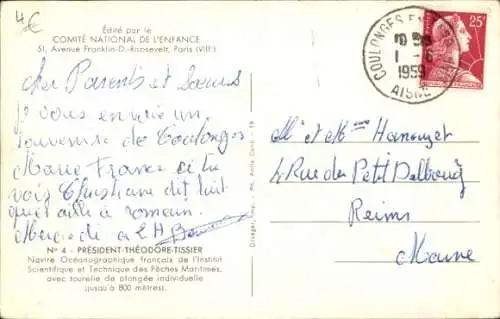 4€
Édité par le
COMITÉ NATIONAL DE L'ENFANCE
51, Avenue Franklin-D.-Roosevelt, Paris (VIIIe)
Cher Parents et Sœurs
je vous envoie un
souvenir de Coulonges
Marie France si tu
vois Christiane dit lui
qu'elle a
Merci de
N° 4 - PRÉSIDENT-THÉODORE-TISSIER
Navire Océanographique français de l'Institut
Scientifique et Technique des Pêches Maritimes,
avec tourelle de plongée individuelle
(jusqu'à 800 mètres).
COULONGES
1 - 6
1959
AISNE
25F
Mr et Mme Hanouzet
4 Rue du Petit
Reims
Marne